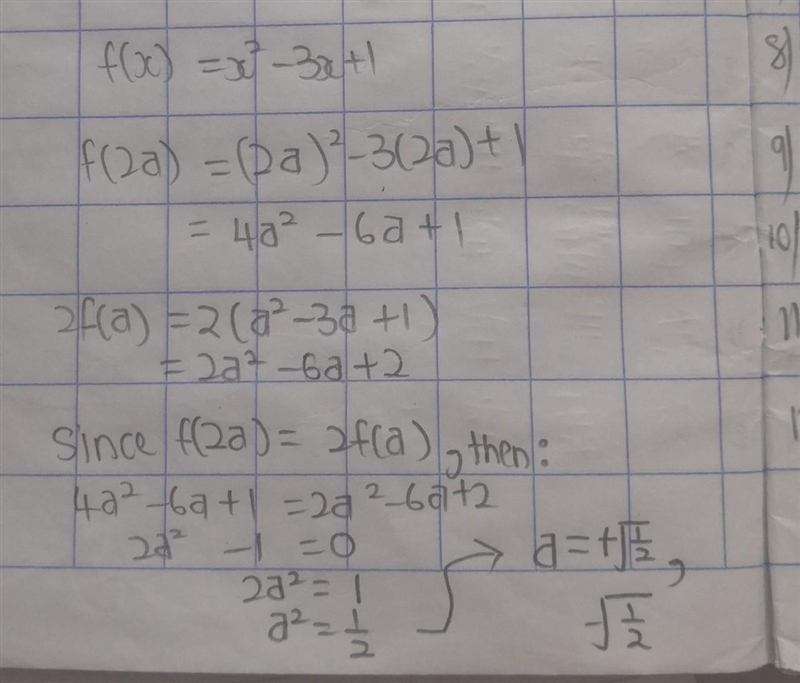 f(x) = x² - 3x + 1
8)
f(2a) = (2a)² - 3(2a) + 1
9)
= 4a² - 6a + 1
10)
2f(a) = 2(a² - 3a + 1)
11
= 2a² - 6a + 2
Since f(2a) = 2f(a), then:
1
4a² - 6a + 1 = 2a² - 6a + 2
2a² - 1 = 0
2a² = 1
a² = 1/2
→ a = +√1/2,
-√1/2